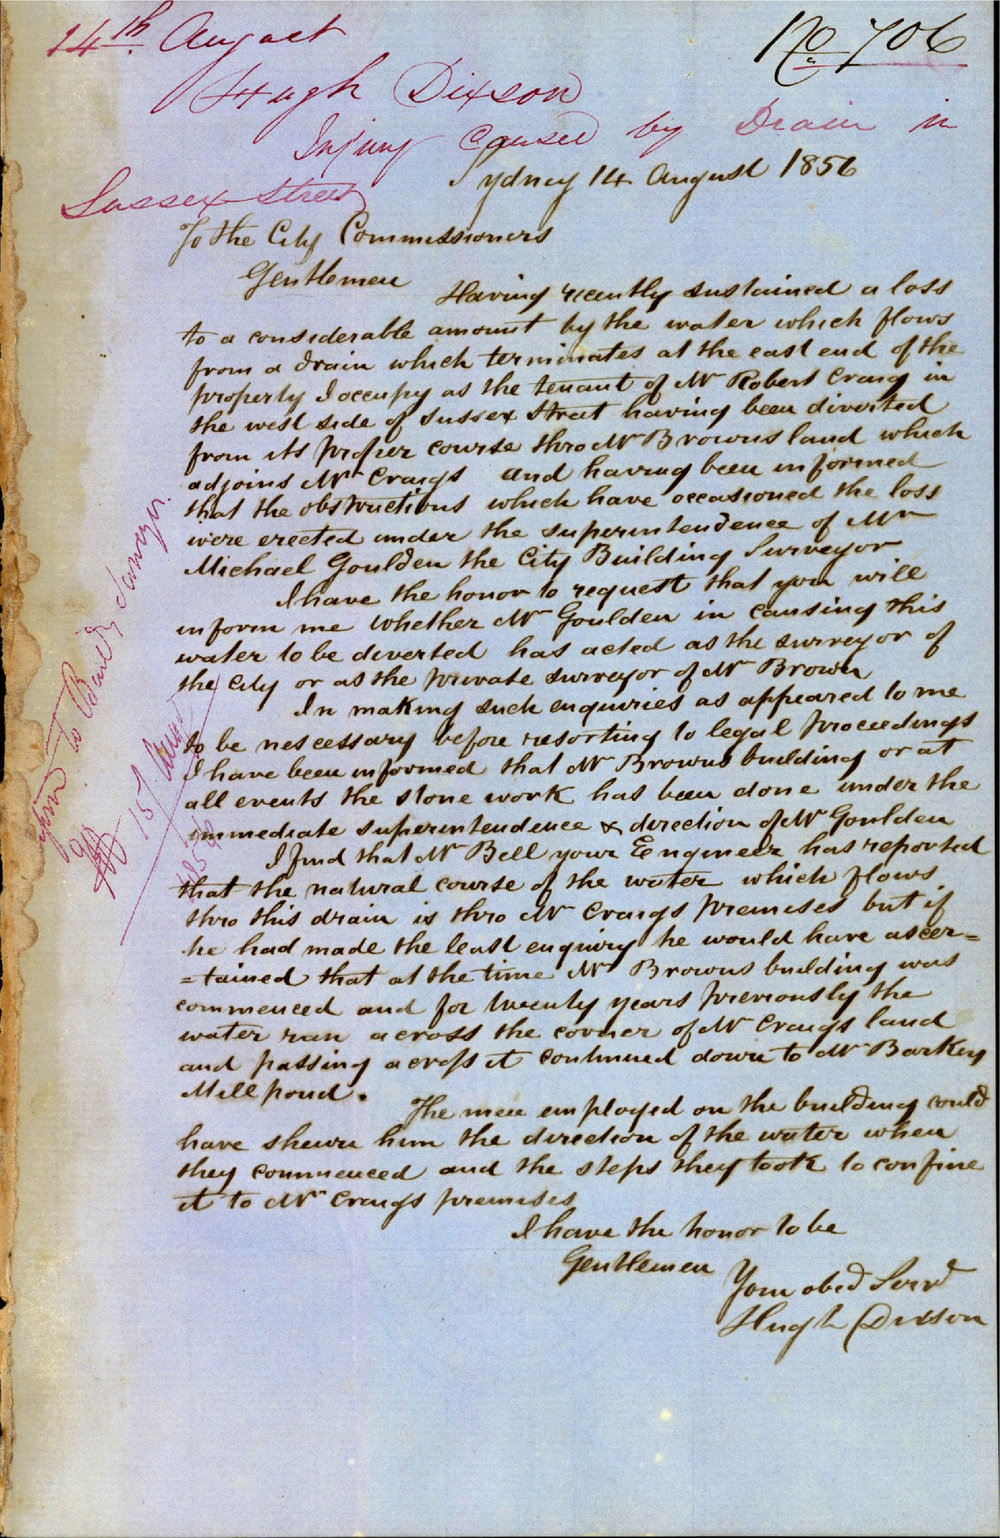 14th August
No 706
Hugh Dixson
Injury caused by Drain in
Sussex Street
Sydney 14 August 1856
To the City Commissioners
Gentlemen
Having recently sustained a loss
to a considerable amount by the water which flows
from a drain which terminates at the east end of the
property I occupy as the tenant of Mr Robert Craig in
the west side of Sussex Street having been diverted
from its proper course thro Mr Browns land which
adjoins Mr Craigs and having been informed
that the obstructions which have occasioned the loss
were erected under the superintendence of Mr
Michael Goulden the City Building Surveyor
I have the honor to request that you will
inform me whether Mr Goulden in causing this
water to be diverted has acted as the surveyor of
the City or as the private surveyor of Mr Brown
In making such enquiries as appeared to me
to be nescessary before resorting to legal proceedings
I have been informed that Mr Browns building or at
all events the stone work has been done under the
immediate superintendence & direction of Mr Goulden
I find that Mr Bell your Engineer has reported
that the natural course of the water which flows
thro this drain is thro Mr Craigs premises but if
he had made the least enquiry he would have ascer=
=tained that at the time Mr Browns building was
commenced and for twenty years previously the
water ran across the corner of Mr Craigs land
and passing across it continued down to Mr Barkers
Mill pond.
The men employed on the building could
have shewn him the direction of the water when
they commenced and the steps they took to confine
it to Mr Craigs premises
I have the honor to be
Gentlemen
Your obed Servt
Hugh Dixson
to Board
15 Augt